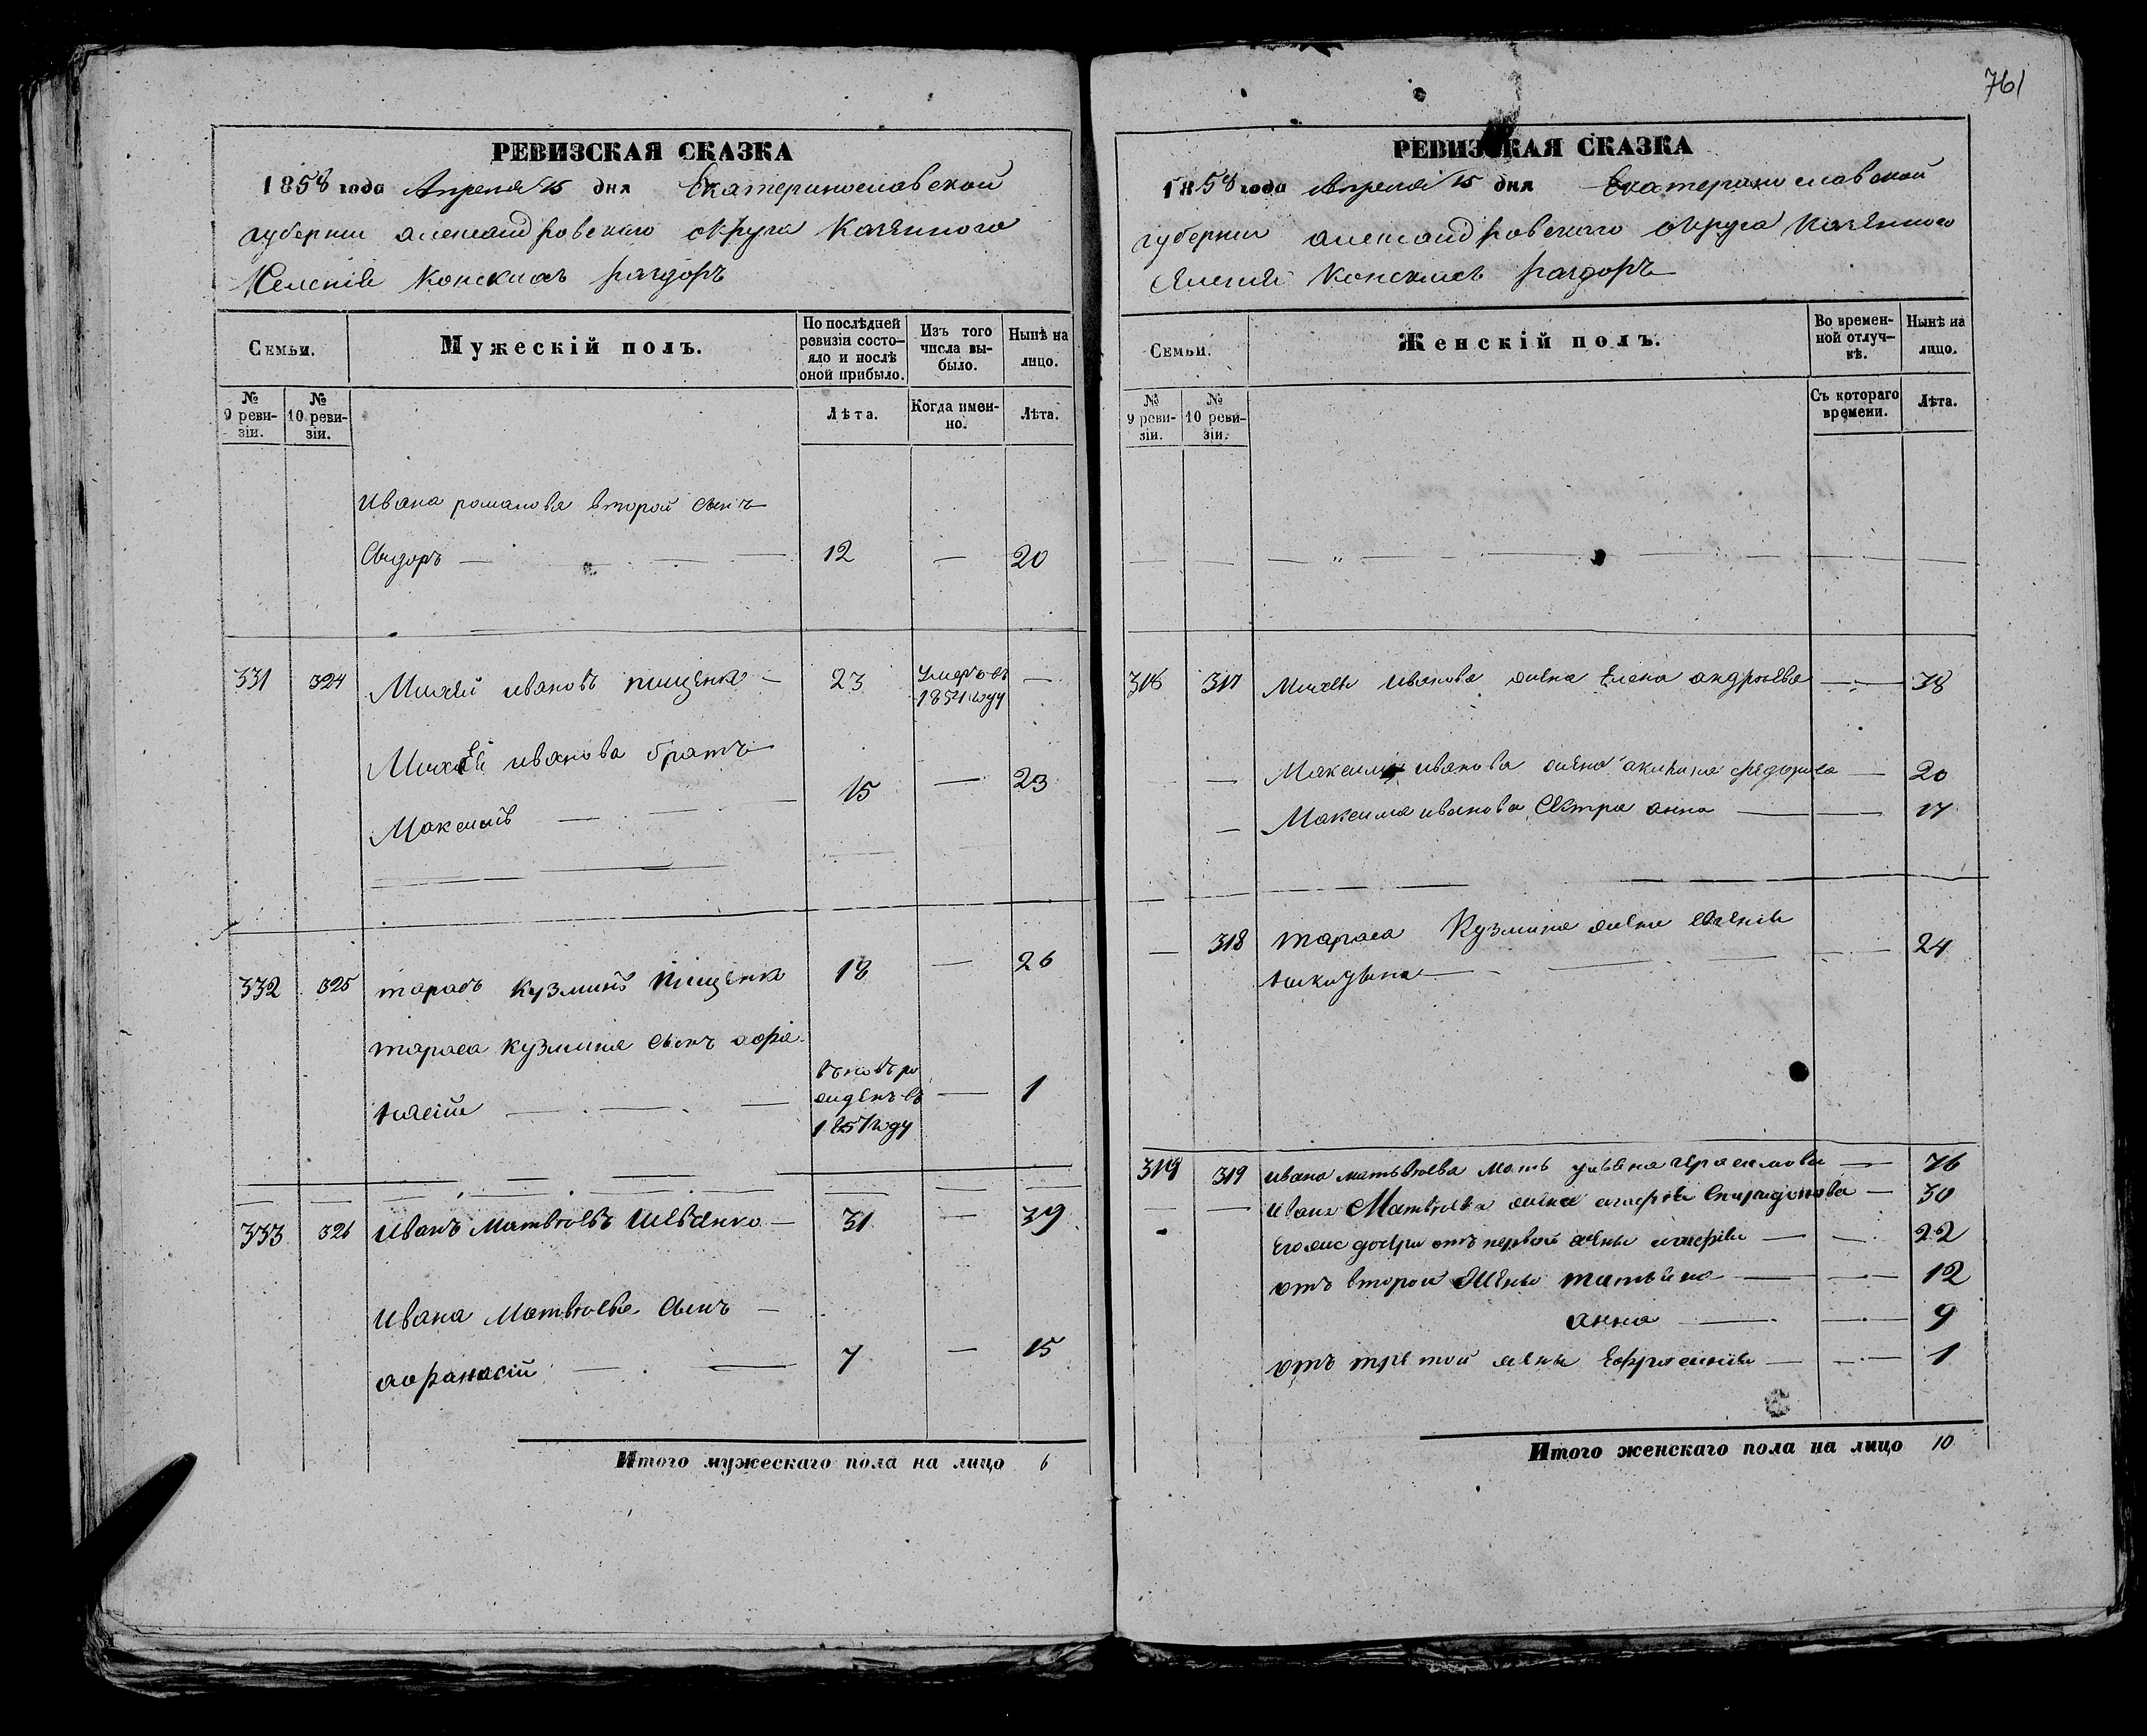 761
РЕВИЗСКАЯ СКАЗКА
1858 года Апреля 15 дня Екатеринославской
губернии александровскаго округа Казенного
Селения Конскихъ раздоръ
Семьи.
Мужескій полъ.
По послѣдней ревизіи состояло и послѣ оной прибыло.
Изъ того числа выбыло.
Нынѣ на лицо.
№ 9 ревизіи.
№ 10 ревизіи.
Лѣта.
Когда именно.
Лѣта.
Ивана романова второй сынъ
Сидоръ 12 — 20
331 324 Михей ивановъ пищенко 23 Умеръ въ 1854 году —
Михея иванова братъ
Максимъ 15 — 23
332 325 тарасъ кузминъ пищенко 18 — 26
тараса кузмина сынъ афа-
насій вновь рожденъ въ 1857 году — 1
333 326 иванъ Матвѣевъ шевченко 31 — 39
ивана Матвѣева сынъ
афанасій 7 — 15
Итого мужескаго пола на лицо 6
РЕВИЗСКАЯ СКАЗКА
1858 года Апреля 15 дня Екатеринославской
губернии александровскаго округа Казенного
Конскихъ раздоръ
Семьи.
Женскій полъ.
Во временной отлучкѣ.
Нынѣ на лицо.
№ 9 ревизіи.
№ 10 ревизіи.
Съ котораго времени.
Лѣта.
316 317 Михея Иванова жена Елена андреева — 38
— Максима иванова жена акилина федорова — 20
— Максима иванова сестра анна — 17
— 318 тараса Кузмина жена
24
319 319 ивана матвѣева мать ульяна герасимова — 76
— — Ивана Матвѣева жена агафія спиридонова — 30
Его же дочери отъ первой жены агафія — 22
отъ второй жены татьяна — 12
анна — 9
отъ третой жены Ефросинія — 1
Итого женскаго пола на лицо 10